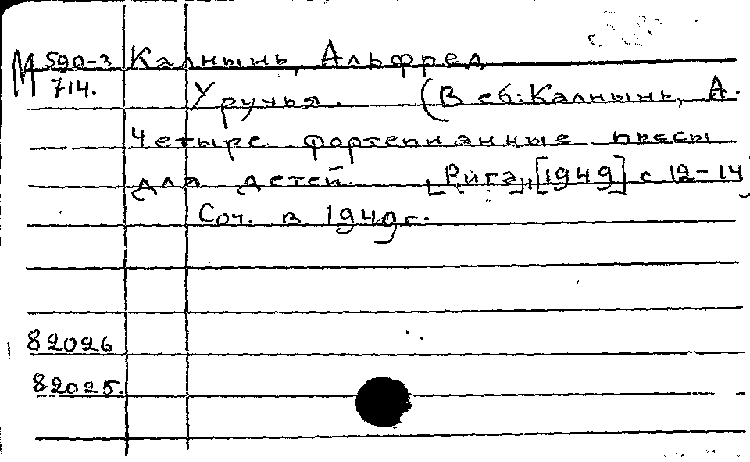 М 590-3 Калнынь, Альфред
714. У ручья. (В сб: Калнынь, А.
Четыре фортепианные пьесы
для детей. [Рига], [1949] с 12-14)
Соч. в 1949 г.
82026
82025.